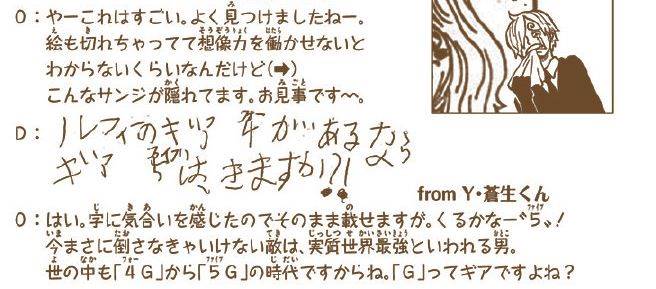 O：やーこれはすごい。よく見つけましたねー。
絵も切れちゃってて想像力を働かせないと
わからないくらいなんだけど(➡)
こんなサンジが隠れてます。お見事です〜〜。
D：ルフィのギア があるなら
ギア は、きますか?!
from Y・蒼生くん
O：はい。字に気合いを感じたのでそのまま載せますが。くるかなー〝5〟!
今まさに倒さなきゃいけない敵は、実質世界最強といわれる男。
世の中も「4G」から「5G」の時代ですからね。「G」ってギアですよね?